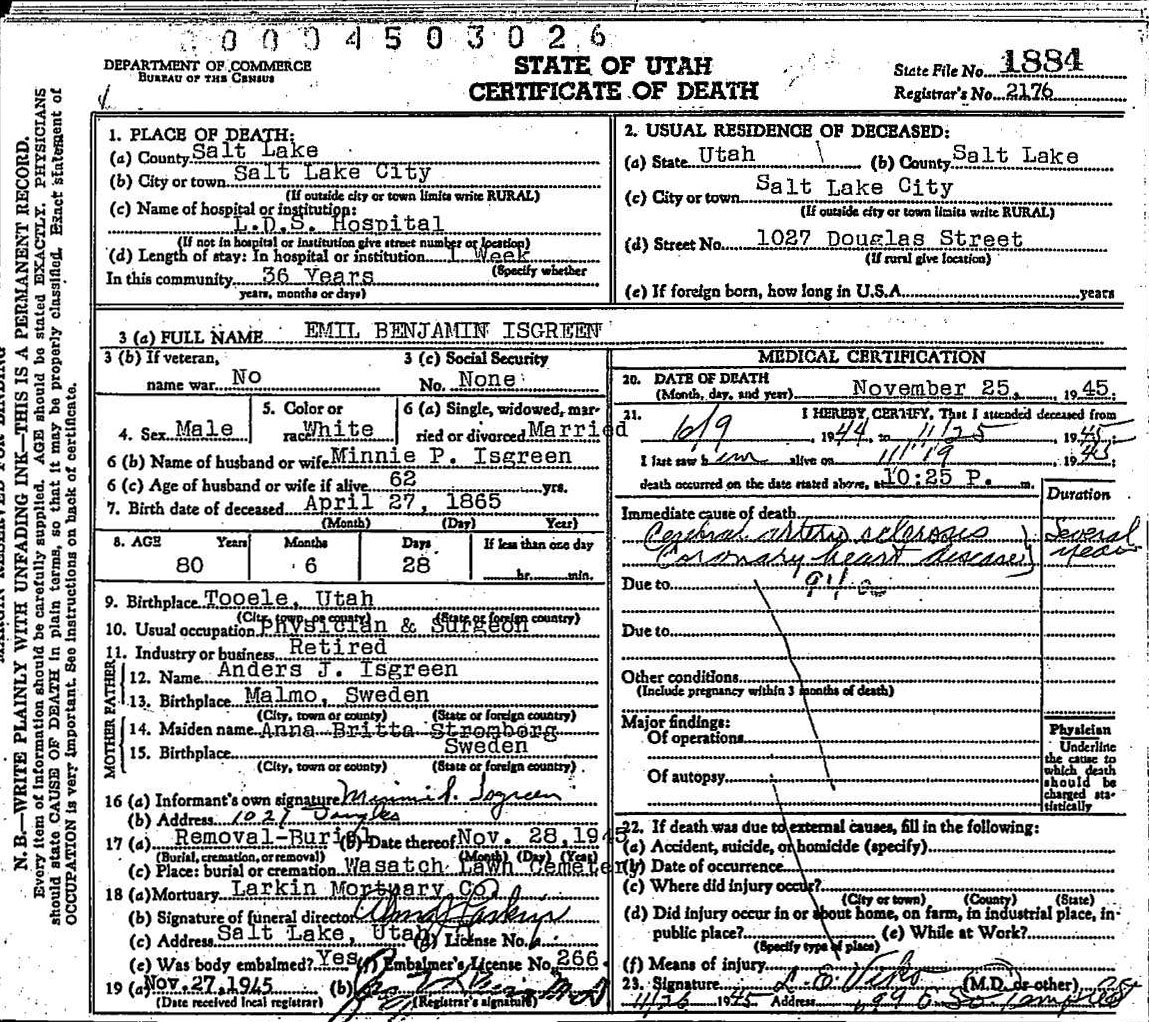 0004503026
DEPARTMENT OF COMMERCE
BUREAU OF THE CENSUS
STATE OF UTAH
CERTIFICATE OF DEATH
State File No. 1884
Registrar's No. 2176
MARGIN RESERVED FOR BINDING
N. B.—WRITE PLAINLY WITH UNFADING INK—THIS IS A PERMANENT RECORD.
Every item of information should be carefully supplied. AGE should be stated EXACTLY. PHYSICIANS
should state CAUSE OF DEATH in plain terms, so that it may be properly classified. Exact statement of
OCCUPATION is very important. See Instructions on back of certificate.
1. PLACE OF DEATH:
(a) County Salt Lake
(b) City or town Salt Lake City
(If outside city or town limits write RURAL)
(c) Name of hospital or institution:
L.D.S. Hospital
(If not in hospital or institution give street number or location)
(d) Length of stay: In hospital or institution 1 Week
(Specify whether
In this community 36 Years
years, months or days)
2. USUAL RESIDENCE OF DECEASED:
(a) State Utah (b) County Salt Lake
(c) City or town Salt Lake City
(If outside city or town limits write RURAL)
(d) Street No. 1027 Douglas Street
(If rural give location)
(e) If foreign born, how long in U.S.A. years
3 (a) FULL NAME EMIL BENJAMIN ISGREEN
3 (b) If veteran, 3 (c) Social Security
name war No No. None
4. Sex Male 5. Color or race White 6 (a) Single, widowed, married or divorced Married
6 (b) Name of husband or wife Minnie P. Isgreen
6 (c) Age of husband or wife if alive 62 yrs.
7. Birth date of deceased April 27, 1865
(Month) (Day) Year)
8. AGE Years Months Days If less than one day
80 6 28 hr. min.
9. Birthplace Tooele, Utah
(City, town, or county) (State or foreign country)
10. Usual occupation Physician & Surgeon
11. Industry or business Retired
FATHER
12. Name Anders J. Isgreen
13. Birthplace Malmo, Sweden
(City, town or county) (State or foreign country)
MOTHER
14. Maiden name Anna Britta Stromberg
15. Birthplace Sweden
(City, town or county) (State or foreign country)
16 (a) Informant's own signature Minnie P. Isgreen
(b) Address 1027 Douglas
17 (a) Removal-Burial (b) Date thereof Nov. 28, 1945
(Burial, cremation, or removal) (Month) (Day) (Year)
(c) Place: burial or cremation Wasatch Lawn Cemetery
18 (a) Mortuary Larkin Mortuary Co.
(b) Signature of funeral director Larkin
(c) Address Salt Lake, Utah (d) License No.
(e) Was body embalmed? Yes (f) Embalmer's License No. 266
19 (a) Nov. 27, 1945 (b)
(Date received local registrar) (Registrar's signature)
MEDICAL CERTIFICATION
20. DATE OF DEATH
(Month, day, and year) November 25, 1945;
21. I HEREBY CERTIFY, That I attended deceased from
6/9, 1944, to 11/25, 1945
I last saw him alive on 11/19, 1945
death occurred on the date stated above, at 10:25 P. m.
Duration
Immediate cause of death
Cerebral artery sclerosis Several
Coronary heart disease years
Due to
Due to
Other conditions
(Include pregnancy within 3 months of death)
Major findings:
Of operations
Of autopsy
Physician
Underline
the cause to
which death
should be
charged sta-
tistically
22. If death was due to external causes, fill in the following:
(a) Accident, suicide, or homicide (specify)
(b) Date of occurrence
(c) Where did injury occur?
(City or town) (County) (State)
(d) Did injury occur in or about home, on farm, in industrial place, in-
public place? (e) While at Work?
(Specify type of place)
(f) Means of injury
23. Signature (M.D. or other)
11/26 1945 Address